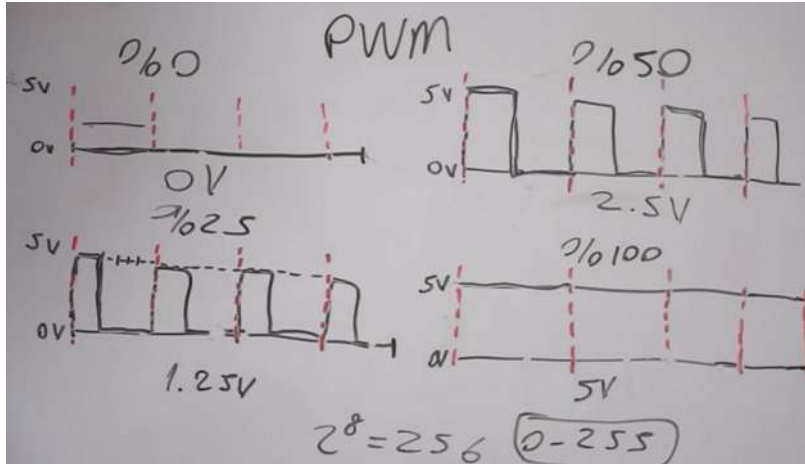 PWM
%0
5V
0V
0V
%50
5V
0V
2.5V
%25
5V
0V
1.25V
%100
5V
0V
5V
2^8=256 0-255